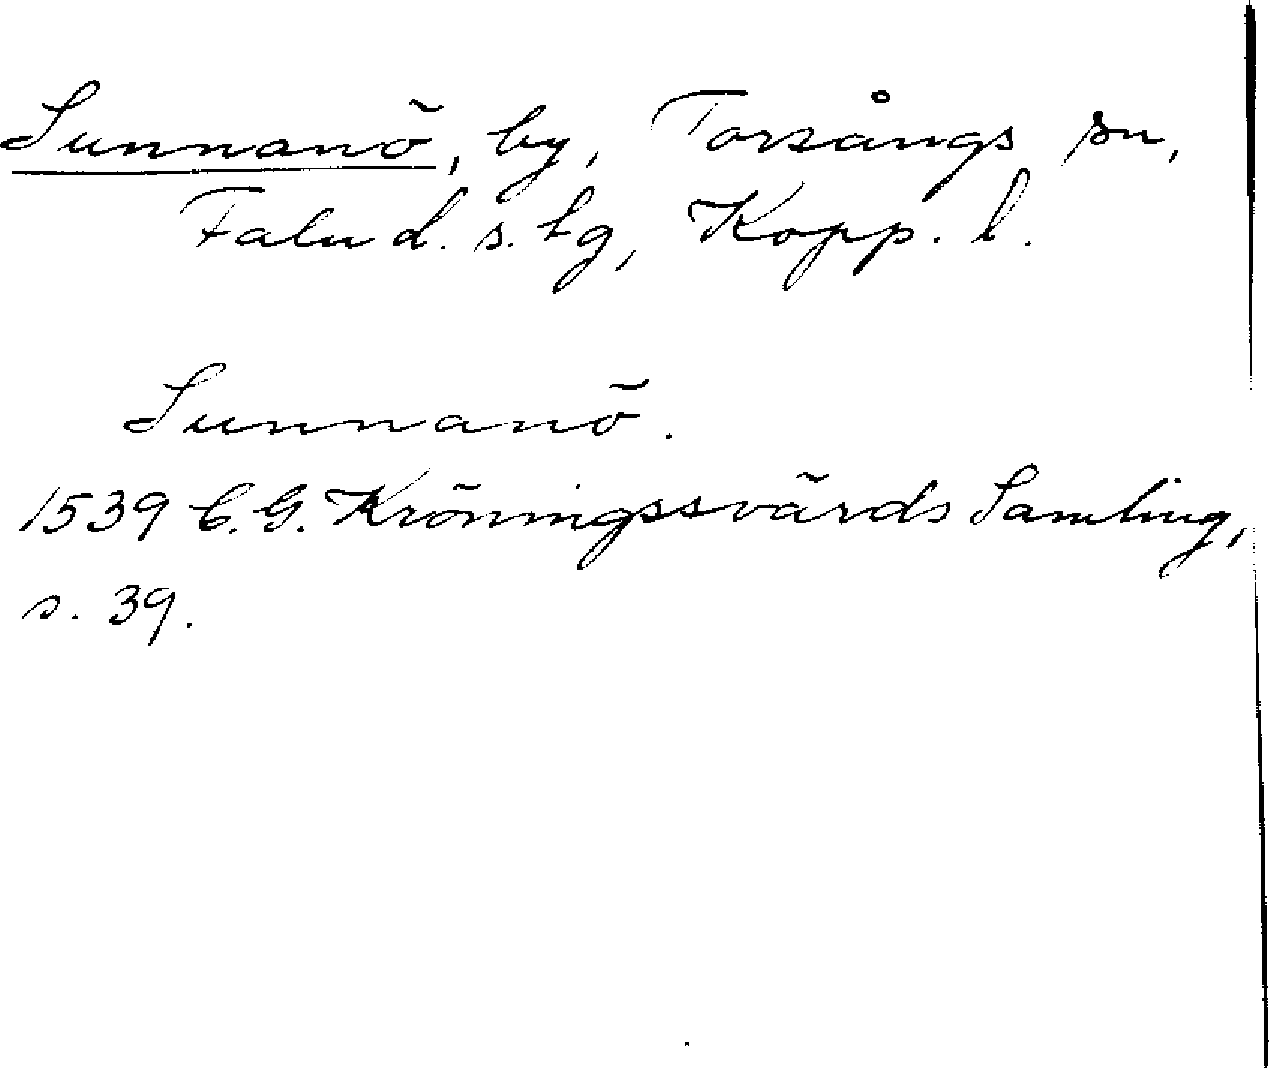 Sunnanö, by, Torsångs sn,
Falu d. s. tg, Kopp. l.
Sunnanö.
1539 C. G. Kröningssvärds Samling,
s. 39.